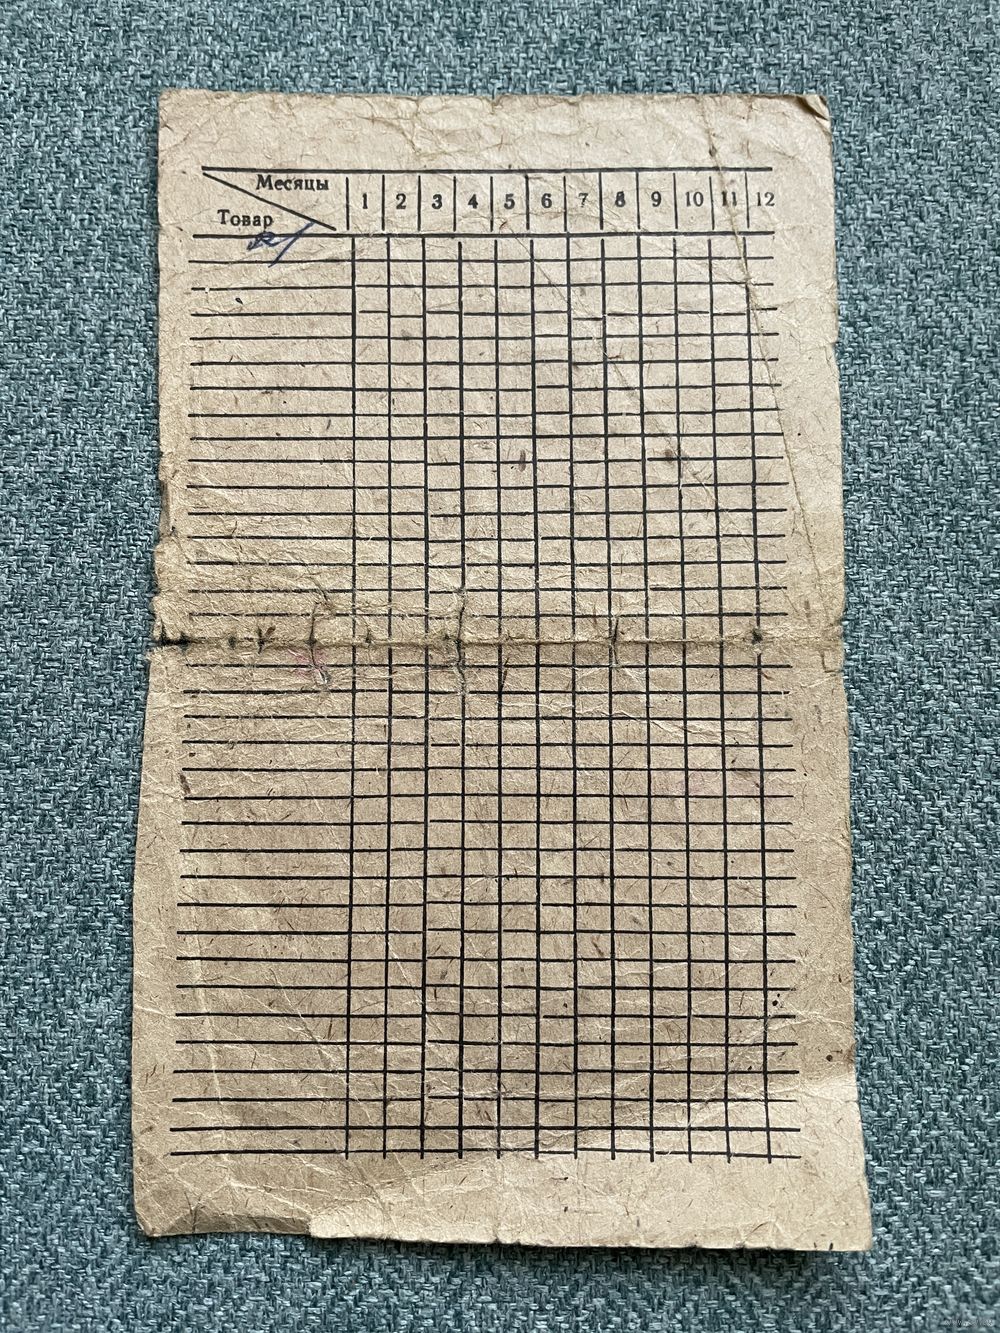 Месяцы 1 2 3 4 5 6 7 8 9 10 11 12
Товар